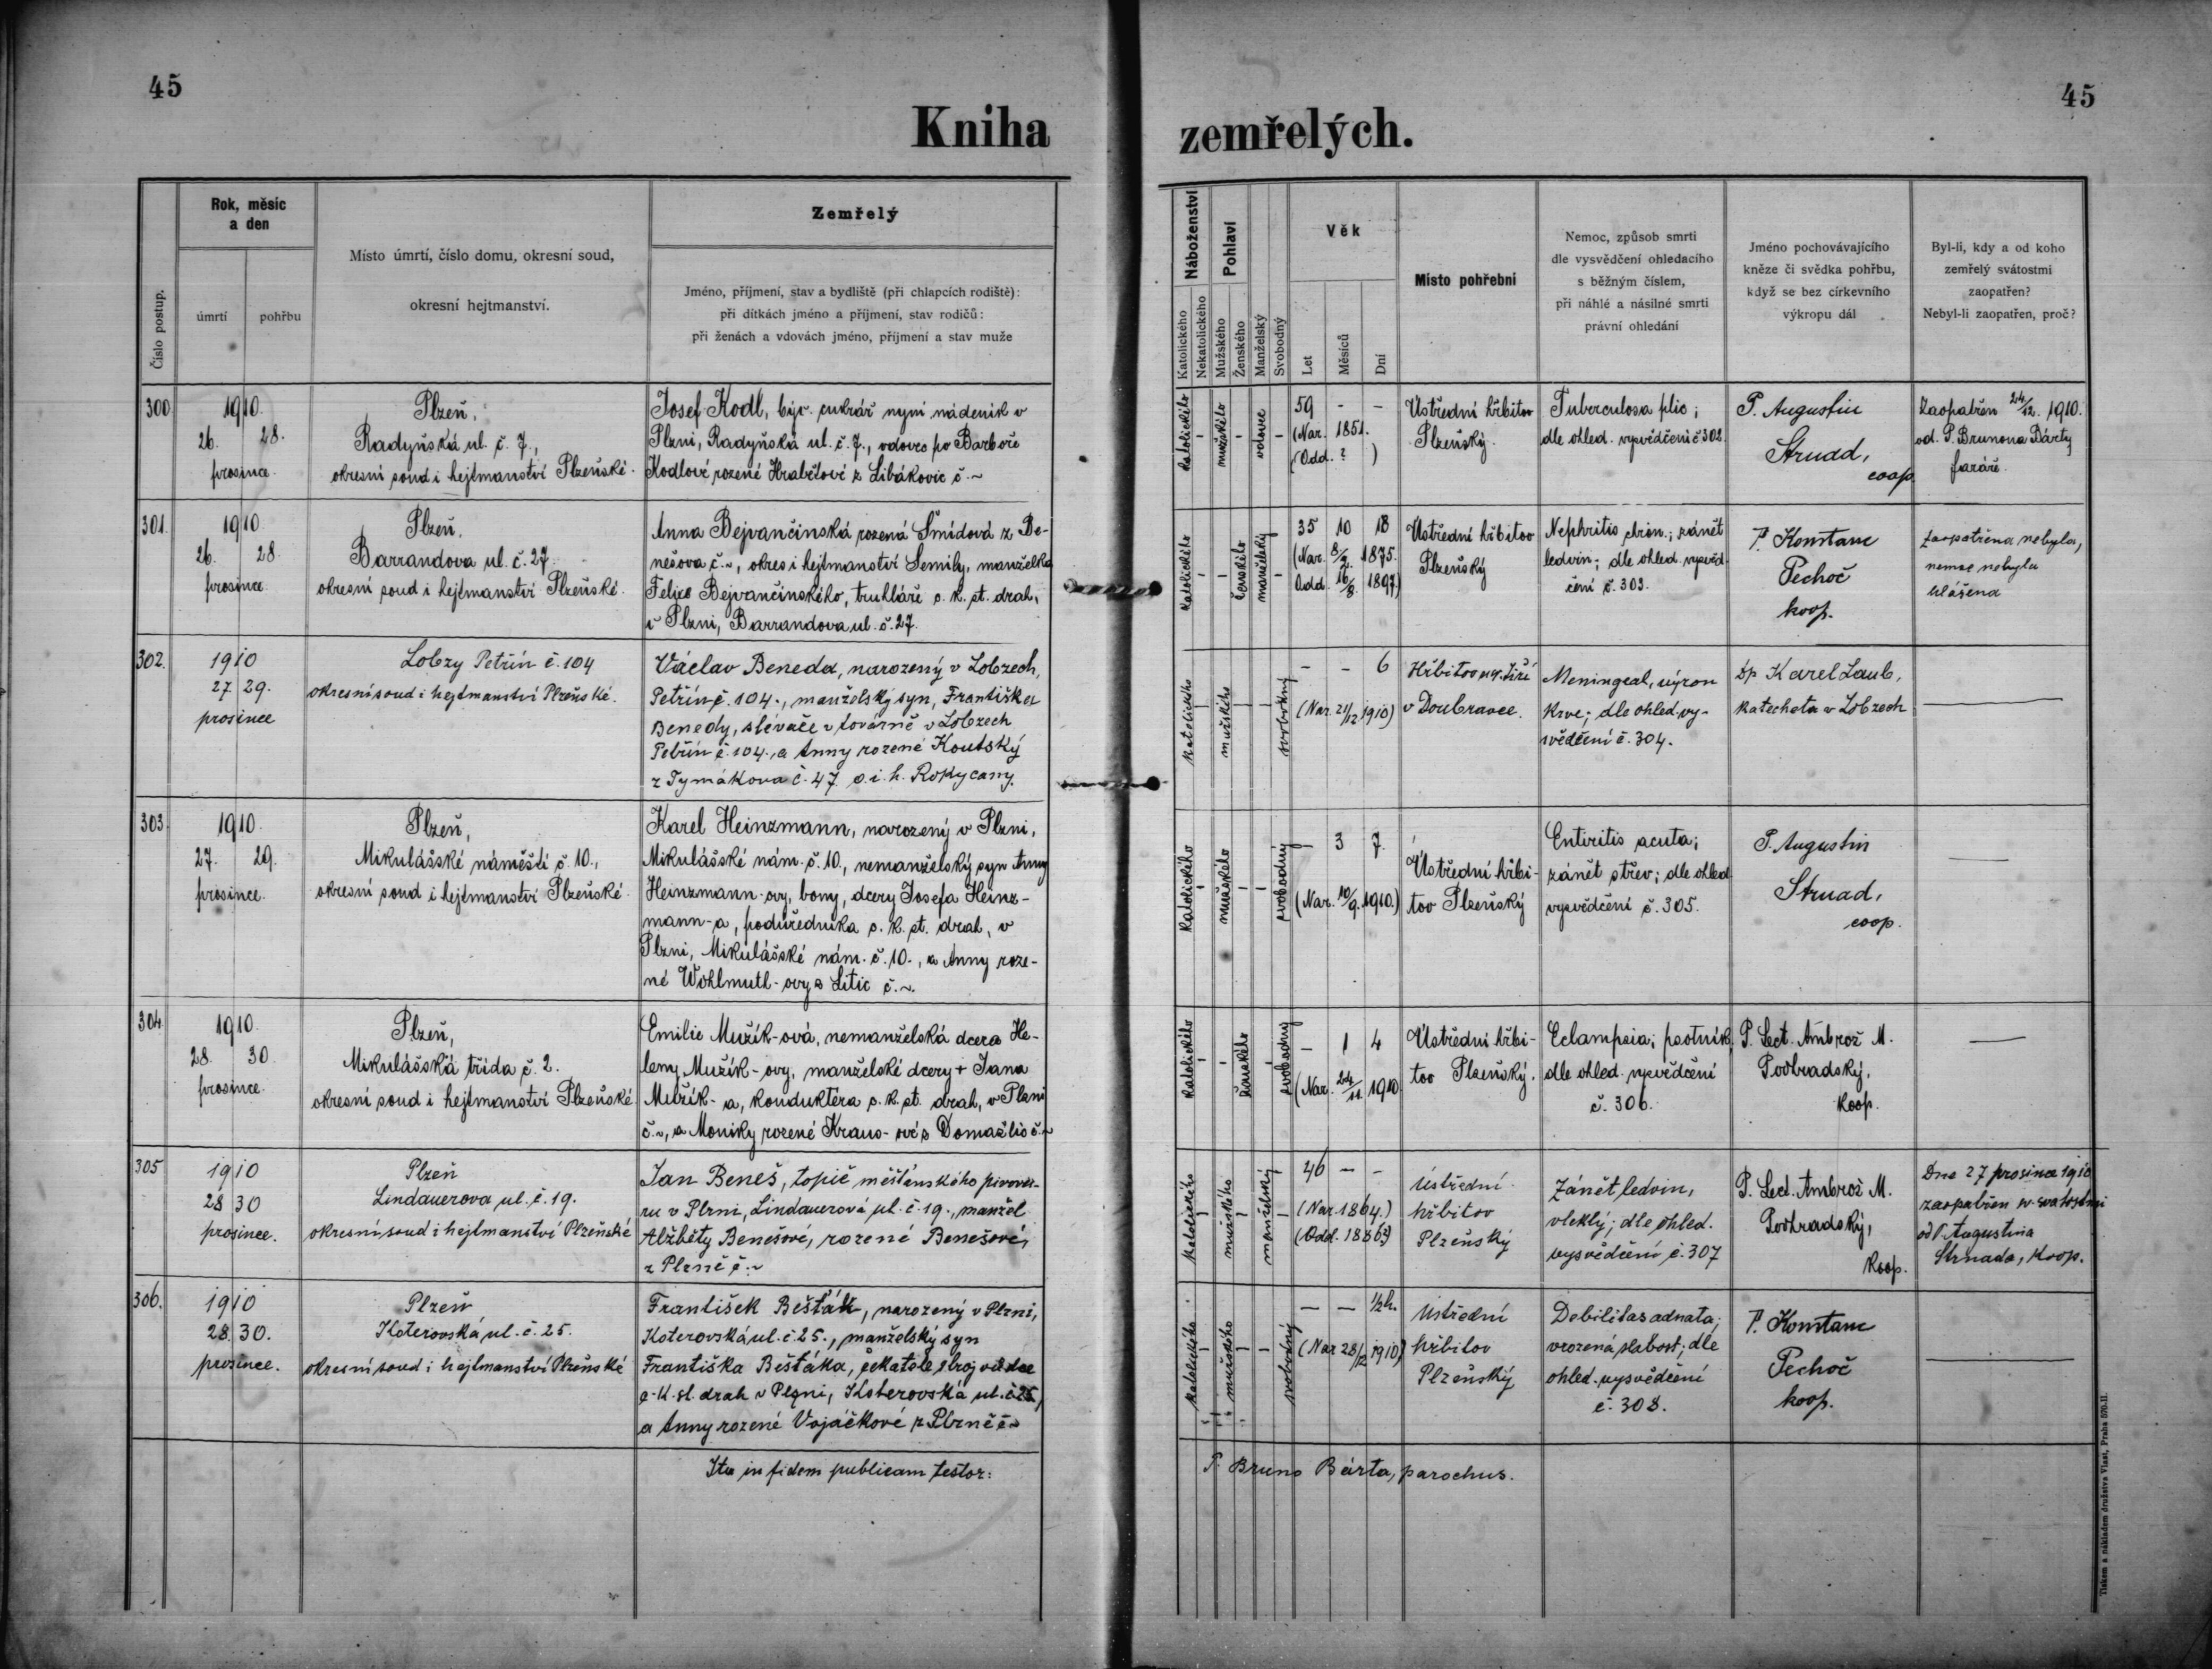 45
45
Kniha
zemřelých.
Číslo postup.
Rok, měsíc
a den
úmrtí
pohřbu
Místo úmrtí, číslo domu, okresní soud,
okresní hejtmanství.
Zemřelý
Jméno, příjmení, stav a bydliště (při chlapcích rodiště):
při dítkách jméno a příjmení, stav rodičů:
při ženách a vdovách jméno, příjmení a stav muže
Náboženství
Katolického
Nekatolického
Pohlaví
Mužského
Ženského
Manželský
Svobodný
Věk
Let
Měsíců
Dní
Místo pohřební
Nemoc, způsob smrti
dle vysvědčení ohledacího
s běžným číslem,
při náhlé a násilné smrti
právní ohledání
Jméno pochovávajícího
kněze či svědka pohřbu,
když se bez církevního
výkropu dál
Byl-li, kdy a od koho
zemřelý svátostmi
zaopatřen?
Nebyl-li zaopatřen, proč?
300
1910.
26. 28.
prosince.
Plzeň,
Radyňská ul. č. 7.,
okresní soud i hejtmanství Plzeňské.
Josef Kodl, býv. cukrář nyní nádeník v
Plzni, Radyňská ul. č. 7., vdovec po Barboře
Kodlové rozené Hrabětové z Libákovic č. ~
katolického - mužského - vdovec -
59 - -
(Nar. 1851.
(Odd. ? )
Ústřední hřbitov
Plzeňský.
Tuberculosa plic;
dle ohled. vysvědčení č 302
P. Augustin
Strnad,
coop.
Zaopatřen 24/12. 1910.
od. P. Brunona Bárty
faráře.
301.
1910.
26. 28.
prosince.
Plzeň.
Barrandova ul. č. 27.
okresní soud i hejtmanství Plzeňské.
Anna Bejvančinská rozená Šmídová z Be-
nešova č. ~, okres i hejtmanství Semily, manželka
Felixe Bejvančinského, truhláře c. k. st. drah,
v Plzni, Barrandova ul. č. 27.
katolického - - ženského manželský -
35 10 18
(Nar. 8/2. 1875.
Odd. 16/8. 1897)
Ústřední hřbitov
Plzeňský
Nephritis chron.; zánět
ledvin; dle ohled. vysvěd-
čení č. 303.
P. Konstanc
Pechoč
koop.
zaopatřena nebyla,
nemoc nebyla
hlášena
302.
1910
27. 29.
prosince
Lobzy Petřín č. 104
okresní soud i hejtmanství Plzeňské.
Václav Beneda, narozený v Lobzech,
Petřín č. 104., manželský syn, Františka
Benedy, slévače v továrně v Lobzech
Petřín č. 104., a Anny rozené Koutský
z Tymákova č. 47 o. i. h. Rokycany.
katolického - mužského - - svobodný
- - 6
(Nar. 21/12 1910)
Hřbitov u sv. Jiří
v Doubravce.
Meningeal, výron
krve; dle ohled. vy-
svědčení č. 304.
dp Karel Laub,
katecheta v Lobzech
303.
1910.
27. 29.
prosince.
Plzeň,
Mikulášské náměstí č. 10.,
okresní soud i hejtmanství Plzeňské.
Karel Heinzmann, narozený v Plzni,
Mikulášské nám. č. 10., nemanželský syn Anny
Heinzmann-ovy, bony, dcery Josefa Heinz-
mann-a, podúředníka c. k. st. drah, v
Plzni, Mikulášské nám. č. 10., a Anny roze-
né Wohlmutl-ovy z Litic č. ~.
katolického - mužského - - svobodný
- 3 7.
(Nar. 20/9. 1910.)
Ústřední hřbi-
tov Plzeňský
Entiritis acuta;
zánět střev; dle ohled
vysvědčení č. 305.
P. Augustin
Strnad,
coop.
304
1910.
28. 30.
prosince.
Plzeň,
Mikulášská třída č. 2.
okresní soud i hejtmanství Plzeňské
Emilie Mužík-ová, nemanželská dcera He-
leny Mužík-ovy, manželské dcery + Jana
Mužík-a, konduktéra c. k. st. drah, v Plzni
č. ~, a Moniky rozené Kraus-ové z Domažlic č. ~
katolického - - ženského - svobodný
- 1 4
(Nar. 24/11. 1910
Ústřední hřbi-
tov Plzeňský.
Eclampsia; psotník,
dle ohled. vysvědčení
č. 306.
P. Lect. Ambrož M.
Poděbradský,
koop.
305
1910
28 30
prosince.
Plzeň
Lindauerova ul. č. 19.
okresní soud i hejtmanství Plzeňské
Jan Beneš, topič měšťanského pivova-
ru v Plzni, Lindauerová ul. č. 19., manžel
Alžběty Benešové, rozené Benešové,
z Plzně č. ~
katolického - mužského - manželský -
46 - -
(Nar. 1864.)
Ústřední
hřbitov
Plzeňský
Zánět ledvin,
vleklý; dle ohled.
vysvědčení č. 307
P. Lect. Ambrož M.
Poděbradský,
koop.
Dne 27 prosince 1910
zaopatřen sv. svátostmi
od P. Augustina
Strnada, koop.
306.
1910
28. 30.
prosince.
Plzeň
Koterovská ul. č. 25.
okresní soud i hejtmanství Plzeňské
František Bešťák, narozený v Plzni,
Koterovská ul. č 25., manželský syn
Františka Bešťáka, čekatele strojvůdce
c. k. st. drah v Plzni, Koterovská ul. č. 25,
a Anny rozené Vojáčkové z Plzně č. ~
katolického - mužského - - svobodný
- - 1/2 h.
(Nar 28/12 1910)
Ústřední
hřbitov
Plzeňský
Debilitas adnata;
vrozená slabost; dle
ohled. vysvědčení
č. 308.
P. Konstanc
Pechoč
koop.
Ita in fidem publicam testor:
P. Bruno Bárta, parochus.
Tiskem a nákladem družstva Vlast, Praha 570-II.